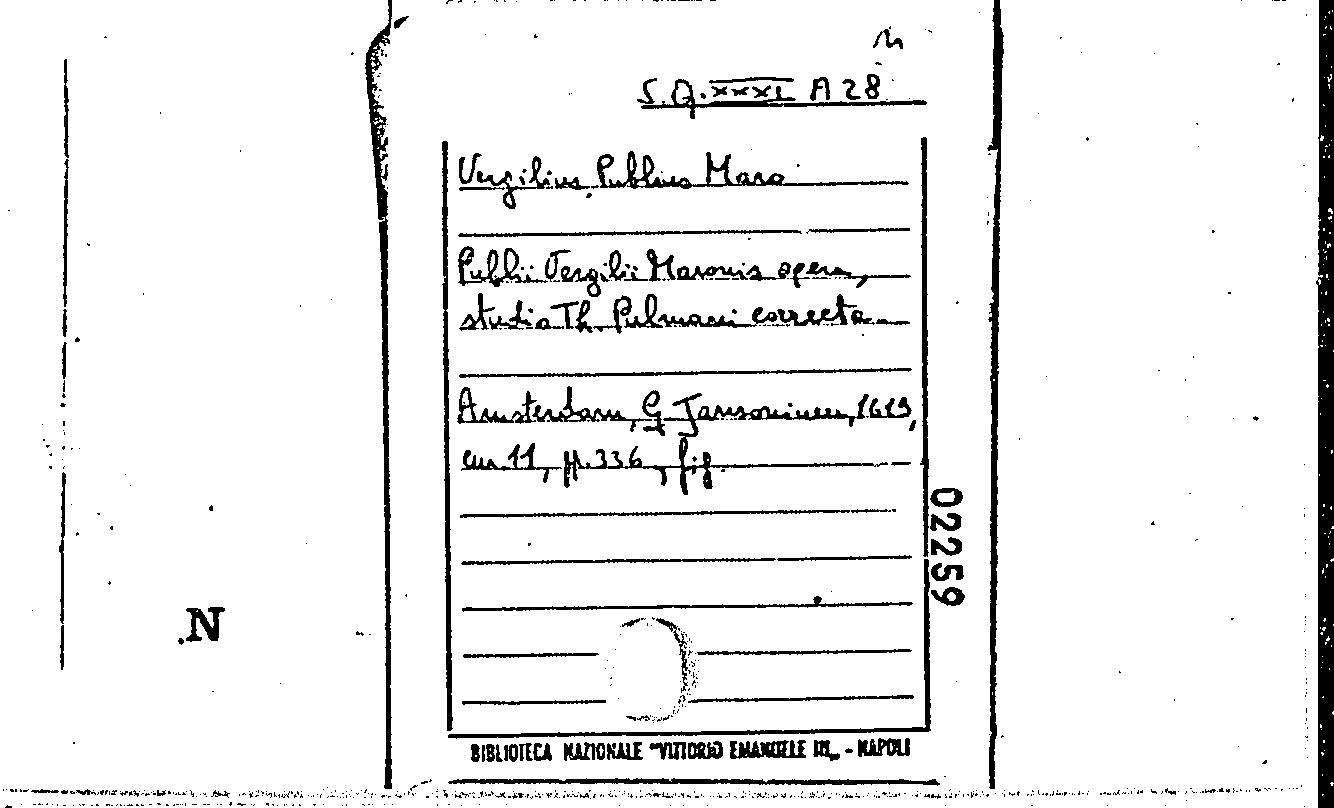 S.Q. XXXI A 28
Vergilius, Publius Maro
Publii Vergilii Maronis opera,
studio Th. Pulmani correcta
Amsterdam, G. Jansonium, 1619,
cm. 11, pp. 336, fig.
02259
N
BIBLIOTECA NAZIONALE "VITTORIO EMANUELE III„ - NAPOLI